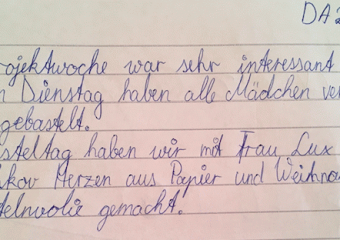 DA 2
ojektwoche war sehr interessant
n Dienstag haben alle Mädchen ver
gebastelt.
steltag haben wir mit Frau Lux
ikov Herzen aus Papier und Weihna
telnwolie gemacht.